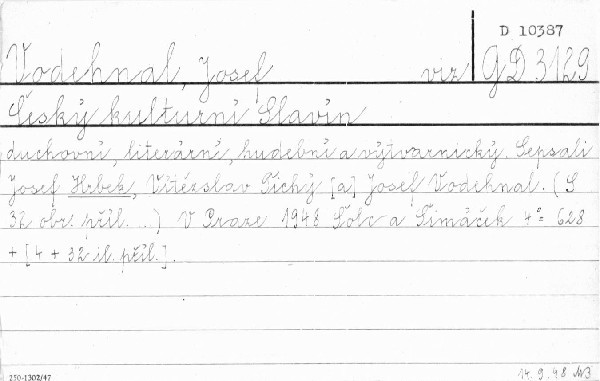 D 10387
Vodehnal, Josef viz GD 3129
Český kulturní Slavín
duchovní, literární, hudební a výtvarnický. Sepsali
Josef Hrbek, Vítězslav Tichý [a] Josef Vodehnal. (S
32 obr. příl. ..) V Praze 1948 Šolc a Šimáček 4° 628
+ [4 + 32 il. příl.].
250-1302/47
14. 9. 48